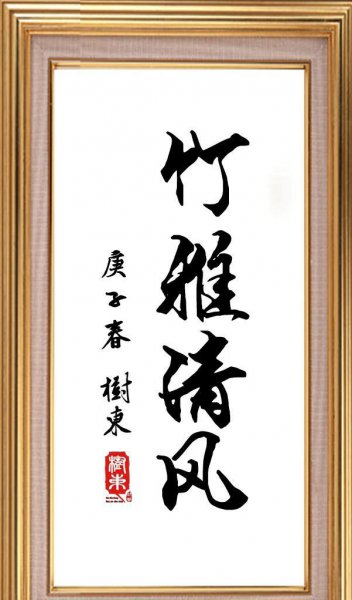 竹雅清风
庚子春 樹東
樹東